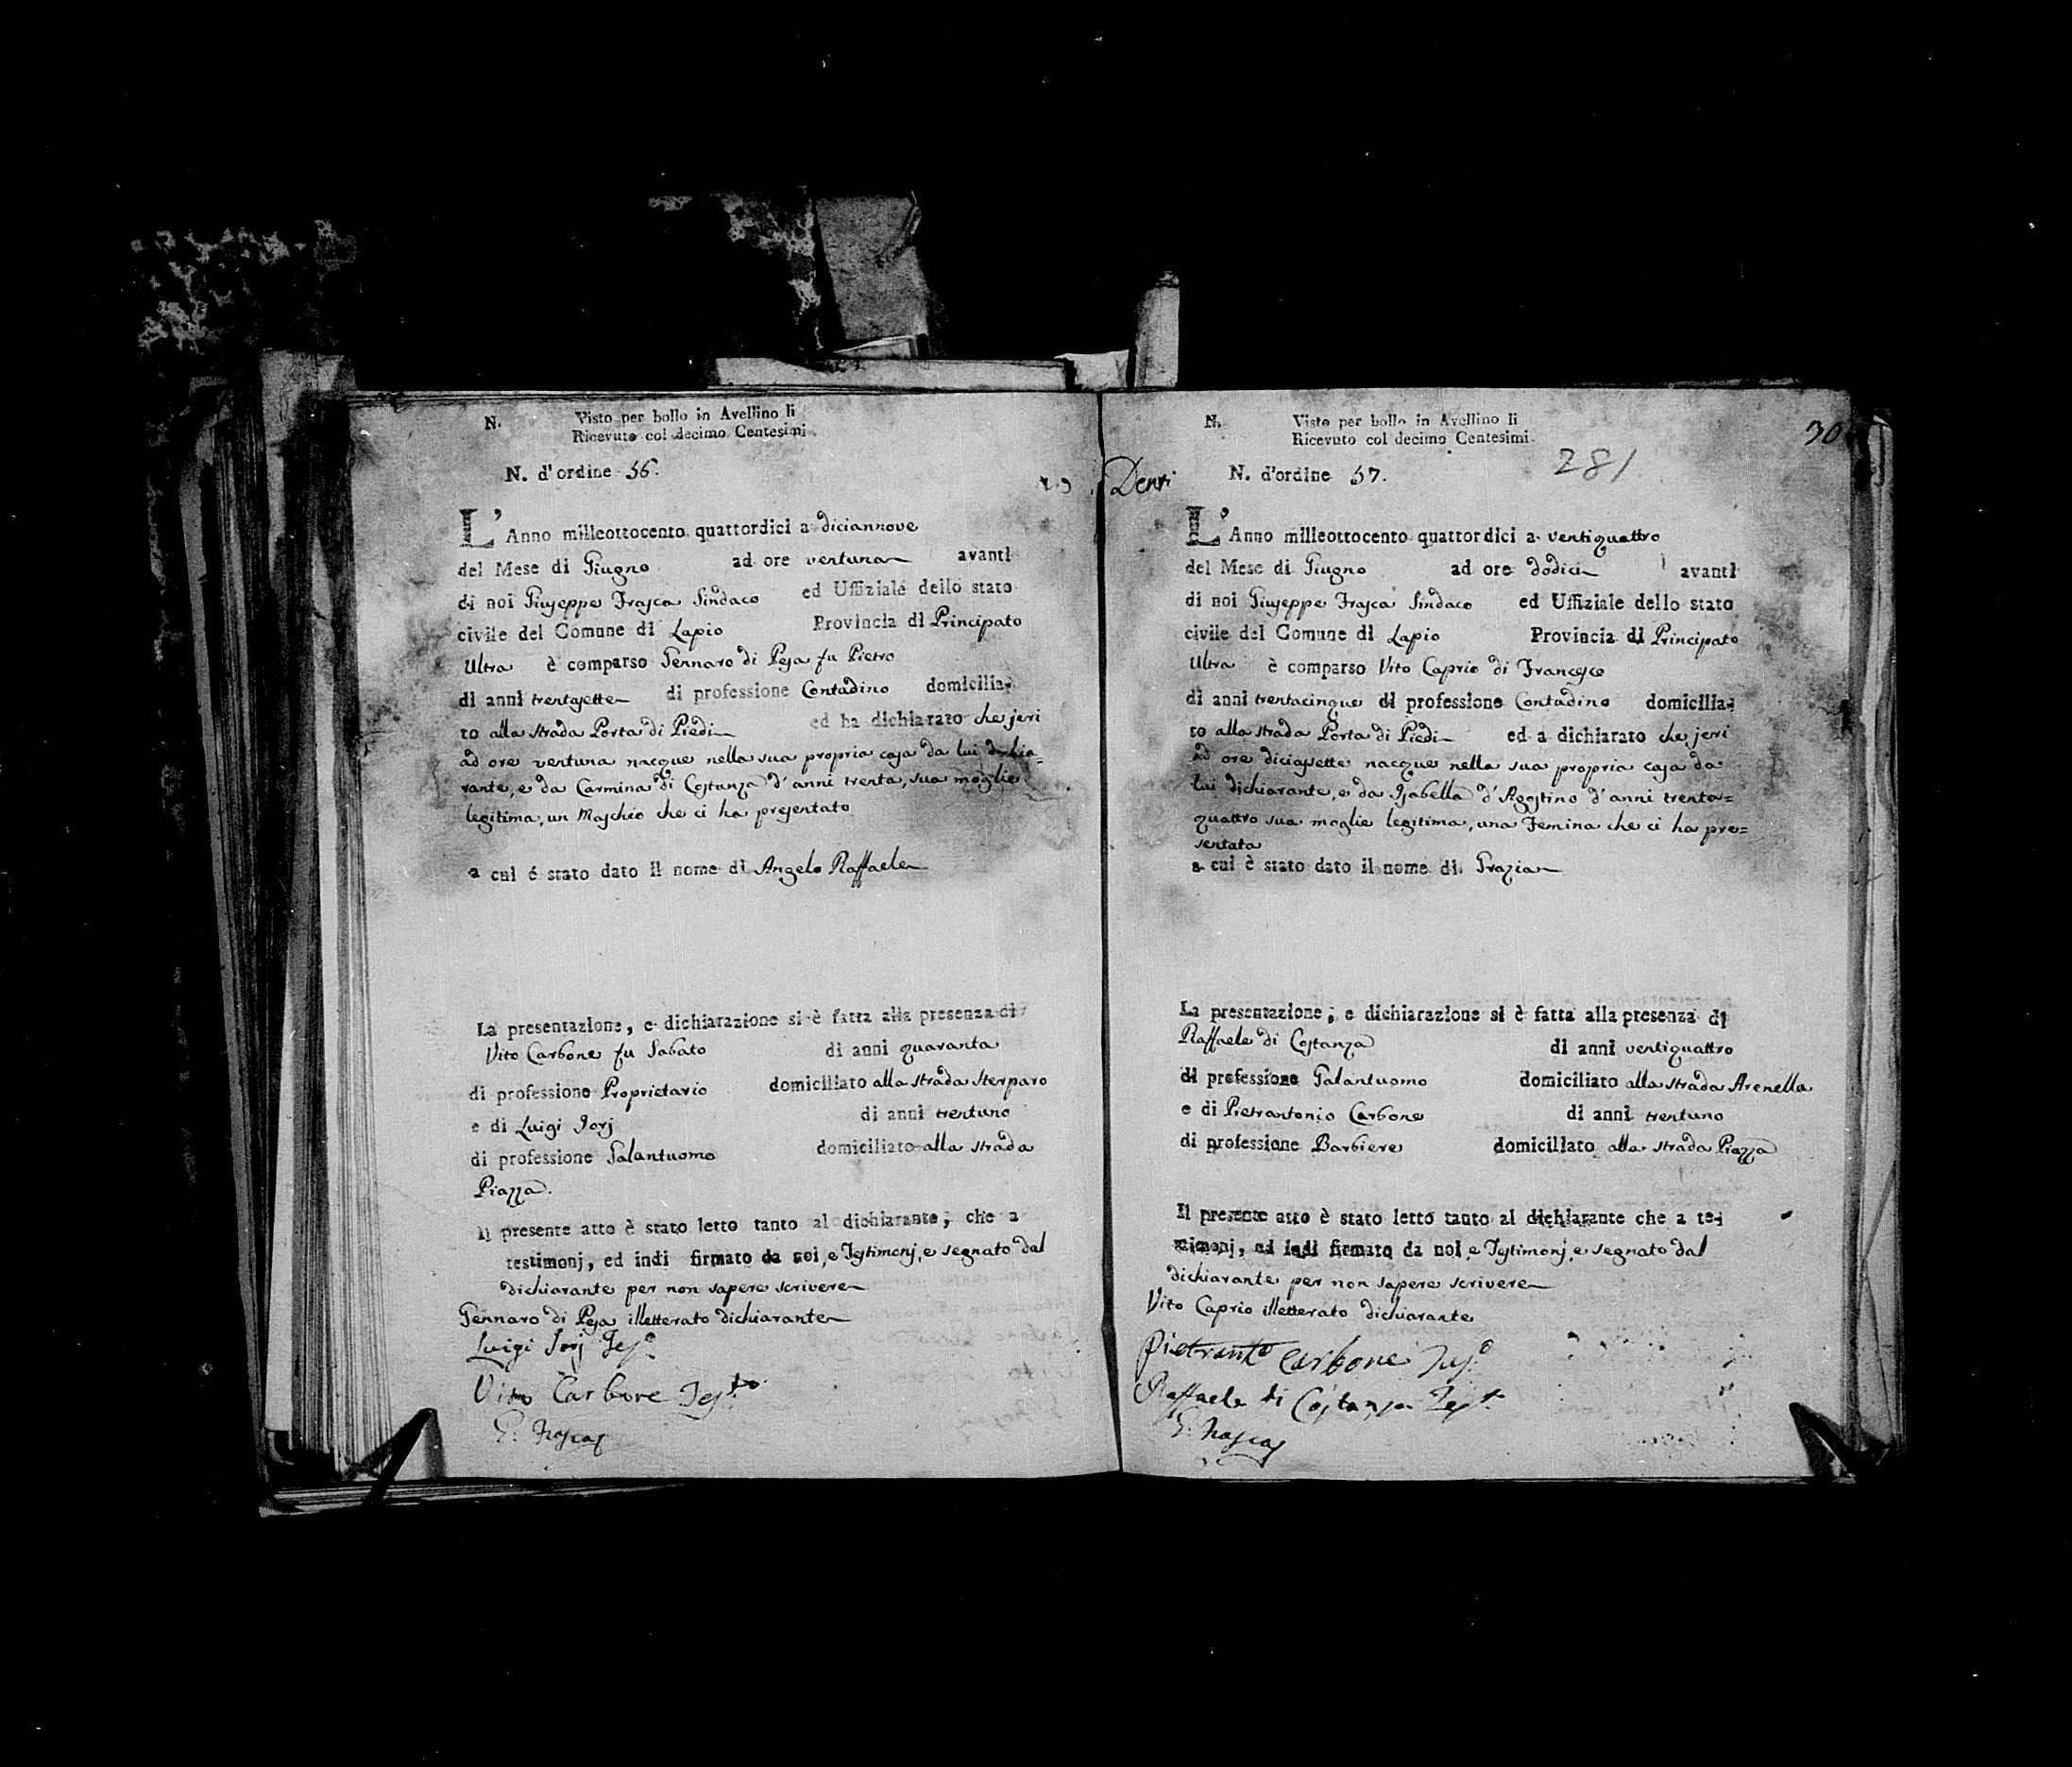 N. Visto per bollo in Avellino li
Ricevuto col decimo Centesimi
N. d'ordine 56.
L'Anno milleottocento quattordici a diciannove
del Mese di Giugno ad ore ventuna avanti
di noi Giuseppe Frasca Sindaco ed Uffiziale dello stato
civile del Comune di Lapio Provincia di Principato
Ultra è comparso Gennaro di Pesa fu Pietro
di anni trentasette di professione Contadino domicilia-
to alla strada Porta di Piedi ed ha dichiarato che jeri
ad ore ventuna nacque nella sua propria casa da lui dichia-
rante, e da Carmina di Costanza d'anni trenta, sua moglie
legitima, un Maschio che ci ha presentato
a cui é stato dato il nome di Angelo Raffaele
La presentazione, e dichiarazione si è fatta alla presenza di
Vito Carbone fu Sabato di anni quaranta
di professione Proprietario domiciliato alla strada Sterparo
e di Luigi Jorj di anni trentuno
di professione Galantuomo domiciliato alla strada
Piazza.
Il presente atto è stato letto tanto al dichiarante, che a
testimonj, ed indi firmato da noi, e Testimonj, e segnato dal
dichiarante per non sapere scrivere
Gennaro di Pesa illetterato dichiarante
Luigi Jorj Tes.º
Vito Carbone Test.to
G. Frasca
N. Visto per bollo in Avellino li
Ricevuto col decimo Centesimi.
30
281
N. d'ordine 57.
L'Anno milleottocento quattordici a ventiquattro
del Mese di Giugno ad ore dodici avanti
di noi Giuseppe Frasca Sindaco ed Uffiziale dello stato
civile del Comune di Lapio Provincia di Principato
Ultra è comparso Vito Caprio di Francesco
di anni trentacinque di professione Contadino domicilia-
to alla strada Porta di Piedi ed a dichiarato che jeri
ad ore diciasette nacque nella sua propria casa da
lui dichiarante, e da Isabella d'Agostino d'anni trenta=
quattro sua moglie legitima, una Femina che ci ha pre=
sentata
a cui è stato dato il nome di Grazia
La presentazione, e dichiarazione si è fatta alla presenza di
Raffaele di Costanza di anni ventiquattro
di professione Galantuomo domiciliato alla strada Arenella
e di Pietrantonio Carbone di anni trentuno
di professione Barbiere domiciliato alla strada Piazza
Il presente atto è stato letto tanto al dichiarante che a te-
stimonj, ed indi firmato da noi, e Testimonj, e segnato dal
dichiarante per non sapere scrivere
Vito Caprio illetterato dichiarante
Pietrantº Carbone Tes.º
Raffaele di Costanza Test.
G. Frasca